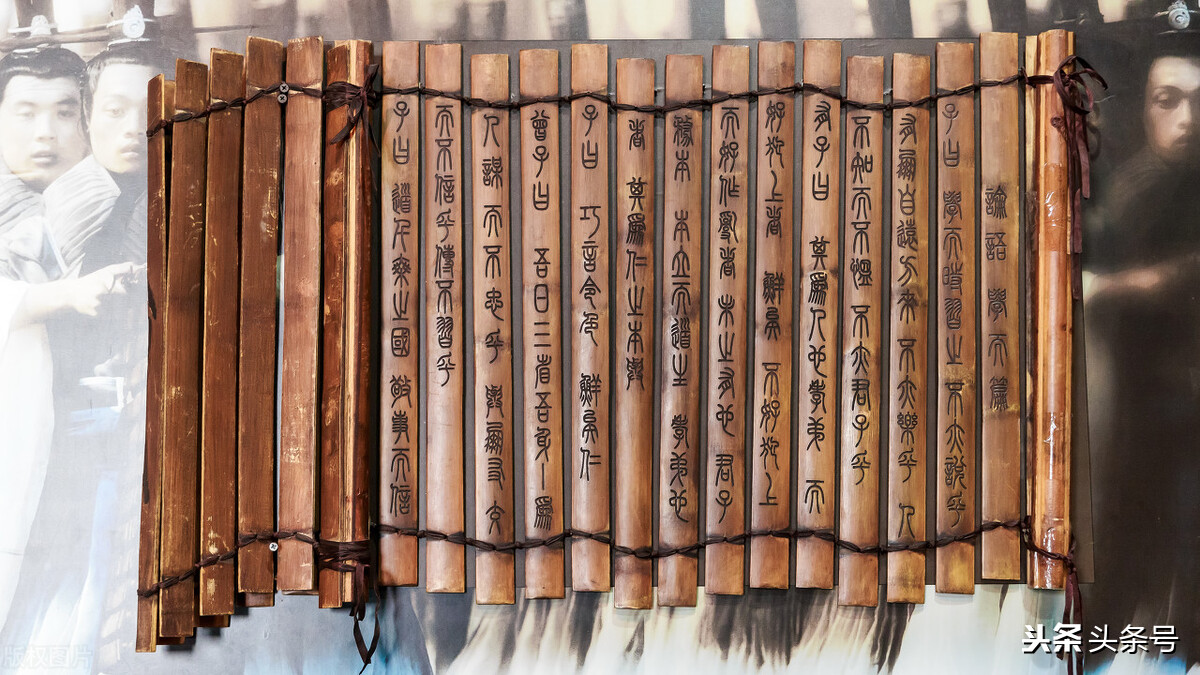 論語 學而篇
子曰 學而時習之 不亦說乎
有朋自遠方來 不亦樂乎 人
不知而不慍 不亦君子乎
有子曰 其爲人也孝弟 而
好犯上者 鮮矣 不好犯上
而好作亂者 未之有也 君子
務本 本立而道生 孝弟也
者 其爲仁之本與
子曰 巧言令色 鮮矣仁
曾子曰 吾日三省吾身 爲
人謀而不忠乎 與朋友交
而不信乎 傳不習乎
子曰 道千乘之國 敬事而信
头条 头条号
版权图片